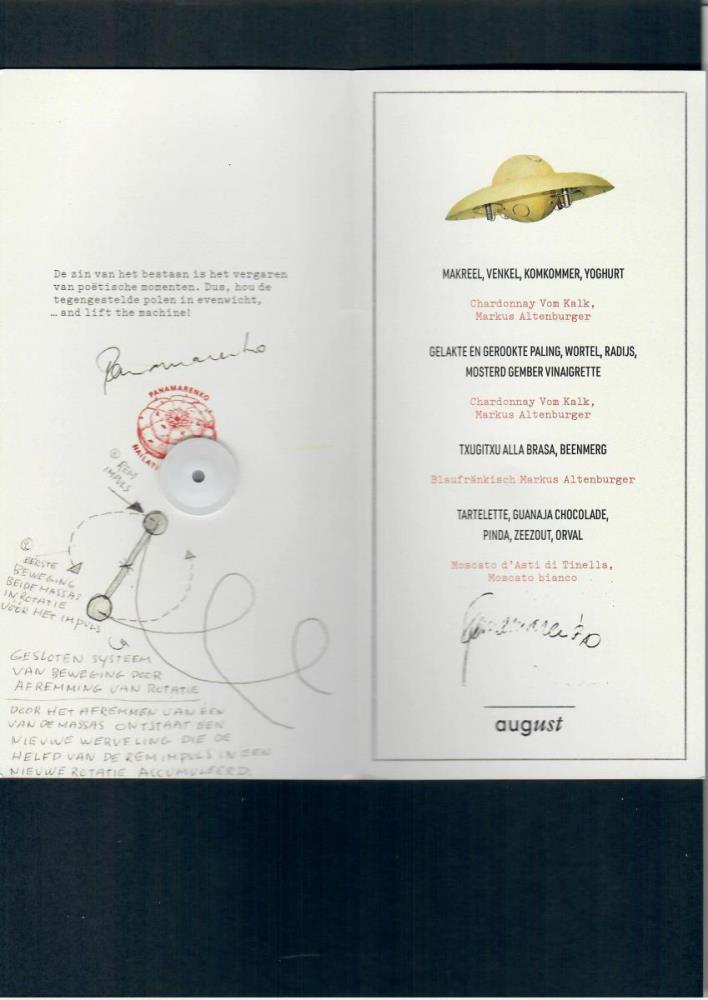 De zin van het bestaan is het vergaren
van poëtische momenten. Dus, hou de
tegengestelde polen in evenwicht,
… and lift the machine!
Panamarenko
PANAMARENKO
① REM
IMPULS
②
EERSTE
BEWEGING
BEIDE MASSAS
IN ROTATIE
VOOR HET IMPULS
GESLOTEN SYSTEEM
VAN BEWEGING DOOR
AFREMMING VAN ROTATIE
DOOR HET AFREMMEN VAN EEN
VAN DE MASSAS ONTSTAAT EEN
NIEUWE WERVELING DIE DE
HELFD VAN DE REM IMPULS IN EEN
NIEUWE ROTATIE ACCUMULEERD.
MAKREEL, VENKEL, KOMKOMMER, YOGHURT
Chardonnay Vom Kalk,
Markus Altenburger
GELAKTE EN GEROOKTE PALING, WORTEL, RADIJS,
MOSTERD GEMBER VINAIGRETTE
Chardonnay Vom Kalk,
Markus Altenburger
TXUGITXU ALLA BRASA, BEENMERG
Blaufränkisch Markus Altenburger
TARTELETTE, GUANAJA CHOCOLADE,
PINDA, ZEEZOUT, ORVAL
Moscato d'Asti di Tinella,
Moscato bianco
Panamarenko
august